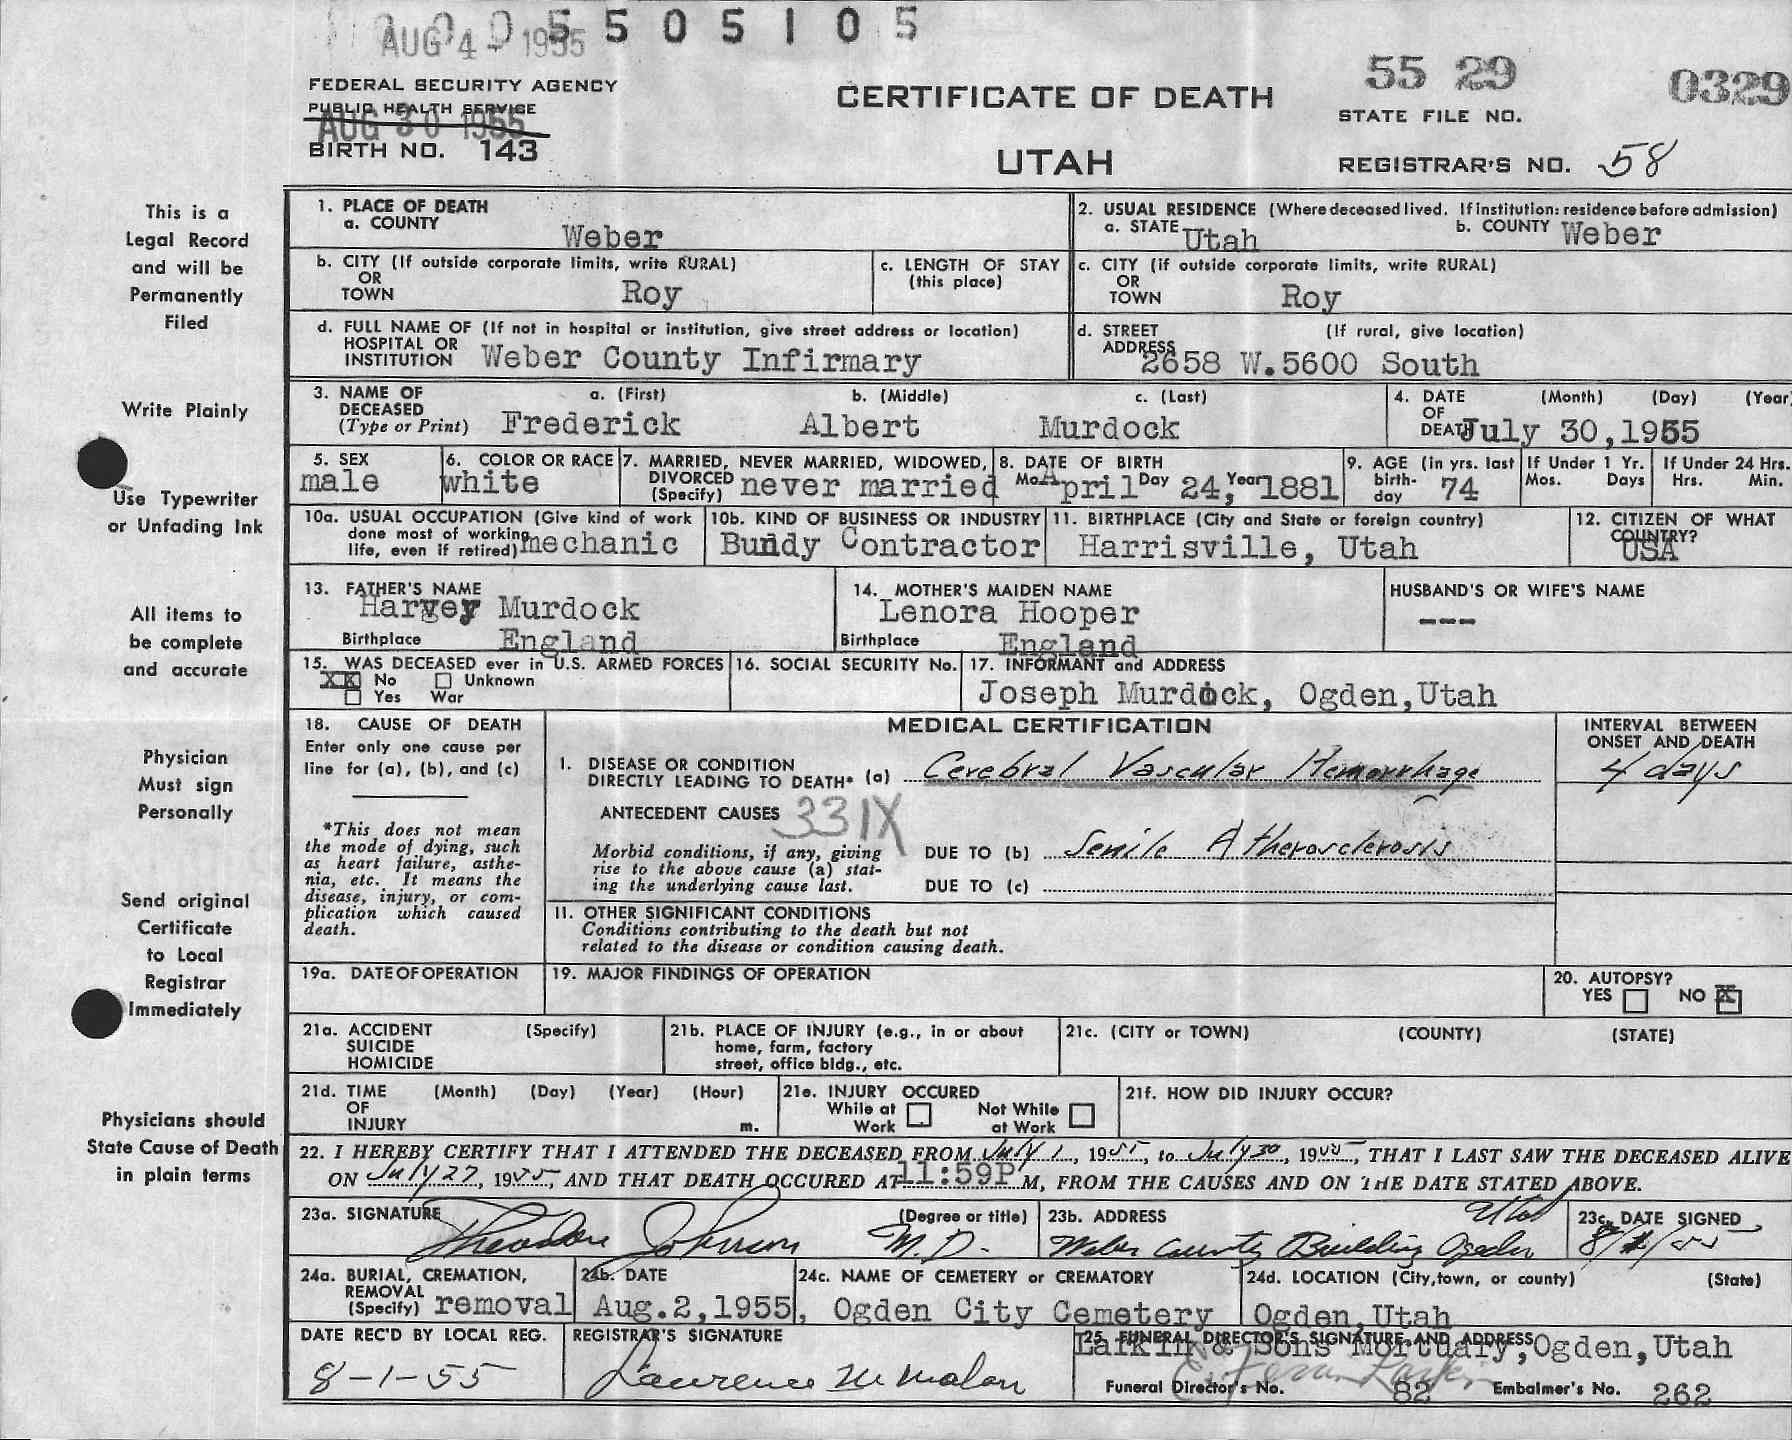 AUG 4 - 1955
5 5 0 5 1 0 5
FEDERAL SECURITY AGENCY
PUBLIC HEALTH SERVICE
AUG 30 1955
BIRTH NO. 143
CERTIFICATE OF DEATH
UTAH
55 29 0329
STATE FILE NO.
REGISTRAR'S NO. 58
This is a
Legal Record
and will be
Permanently
Filed
Write Plainly
Use Typewriter
or Unfading Ink
All items to
be complete
and accurate
Physician
Must sign
Personally
Send original
Certificate
to Local
Registrar
Immediately
Physicians should
State Cause of Death
in plain terms
1. PLACE OF DEATH
a. COUNTY Weber
2. USUAL RESIDENCE (Where deceased lived. If institution: residence before admission)
a. STATE Utah b. COUNTY Weber
b. CITY (If outside corporate limits, write RURAL)
OR
TOWN Roy
c. LENGTH OF STAY
(this place)
c. CITY (if outside corporate limits, write RURAL)
OR
TOWN Roy
d. FULL NAME OF (If not in hospital or institution, give street address or location)
HOSPITAL OR
INSTITUTION Weber County Infirmary
d. STREET (If rural, give location)
ADDRESS
2658 W.5600 South
3. NAME OF a. (First) b. (Middle) c. (Last)
DECEASED
(Type or Print) Frederick Albert Murdock
4. DATE (Month) (Day) (Year)
OF
DEATH July 30,1955
5. SEX
male
6. COLOR OR RACE
white
7. MARRIED, NEVER MARRIED, WIDOWED,
DIVORCED
(Specify) never married
8. DATE OF BIRTH
Mo. April Day 24, Year 1881
9. AGE (in yrs. last
birth-
day 74
If Under 1 Yr.
Mos. Days
If Under 24 Hrs.
Hrs. Min.
10a. USUAL OCCUPATION (Give kind of work
done most of working
life, even if retired) mechanic
10b. KIND OF BUSINESS OR INDUSTRY
Bundy Contractor
11. BIRTHPLACE (City and State or foreign country)
Harrisville, Utah
12. CITIZEN OF WHAT
COUNTRY?
USA
13. FATHER'S NAME
Harvey Murdock
Birthplace England
14. MOTHER'S MAIDEN NAME
Lenora Hooper
Birthplace England
HUSBAND'S OR WIFE'S NAME
---
15. WAS DECEASED ever in U.S. ARMED FORCES
XX No Unknown
Yes War
16. SOCIAL SECURITY No.
17. INFORMANT and ADDRESS
Joseph Murdock, Ogden,Utah
18. CAUSE OF DEATH
Enter only one cause per
line for (a), (b), and (c)
*This does not mean
the mode of dying, such
as heart failure, asthe-
nia, etc. It means the
disease, injury, or com-
plication which caused
death.
MEDICAL CERTIFICATION
INTERVAL BETWEEN
ONSET AND DEATH
I. DISEASE OR CONDITION
DIRECTLY LEADING TO DEATH* (a) Cerebral Vascular Hemorrhage 4 days
ANTECEDENT CAUSES 331X
Morbid conditions, if any, giving
rise to the above cause (a) stat-
ing the underlying cause last.
DUE TO (b) Senile Atherosclerosis
DUE TO (c)
II. OTHER SIGNIFICANT CONDITIONS
Conditions contributing to the death but not
related to the disease or condition causing death.
19a. DATE OF OPERATION
19. MAJOR FINDINGS OF OPERATION
20. AUTOPSY?
YES NO X
21a. ACCIDENT (Specify)
SUICIDE
HOMICIDE
21b. PLACE OF INJURY (e.g., in or about
home, farm, factory
street, office bldg., etc.
21c. (CITY or TOWN) (COUNTY) (STATE)
21d. TIME (Month) (Day) (Year) (Hour)
OF
INJURY m.
21e. INJURY OCCURED
While at Not While
Work at Work
21f. HOW DID INJURY OCCUR?
22. I HEREBY CERTIFY THAT I ATTENDED THE DECEASED FROM July 1, 1955, to July 30, 1955, THAT I LAST SAW THE DECEASED ALIVE
ON July 27, 1955, AND THAT DEATH OCCURED AT 11:59P M, FROM THE CAUSES AND ON THE DATE STATED ABOVE.
23a. SIGNATURE (Degree or title)
Theodore Johnson M.D.
23b. ADDRESS
Weber County Building Ogden Utah
23c. DATE SIGNED
8/1/55
24a. BURIAL, CREMATION,
REMOVAL
(Specify) removal
24b. DATE
Aug.2,1955,
24c. NAME OF CEMETERY or CREMATORY
Ogden City Cemetery
24d. LOCATION (City,town, or county) (State)
Ogden,Utah
DATE REC'D BY LOCAL REG.
8-1-55
REGISTRAR'S SIGNATURE
Lawrence M Malan
25. FUNERAL DIRECTOR'S SIGNATURE AND ADDRESS
Larkin & Sons Mortuary,Ogden,Utah
Funeral Director's No. 82 Embalmer's No. 262